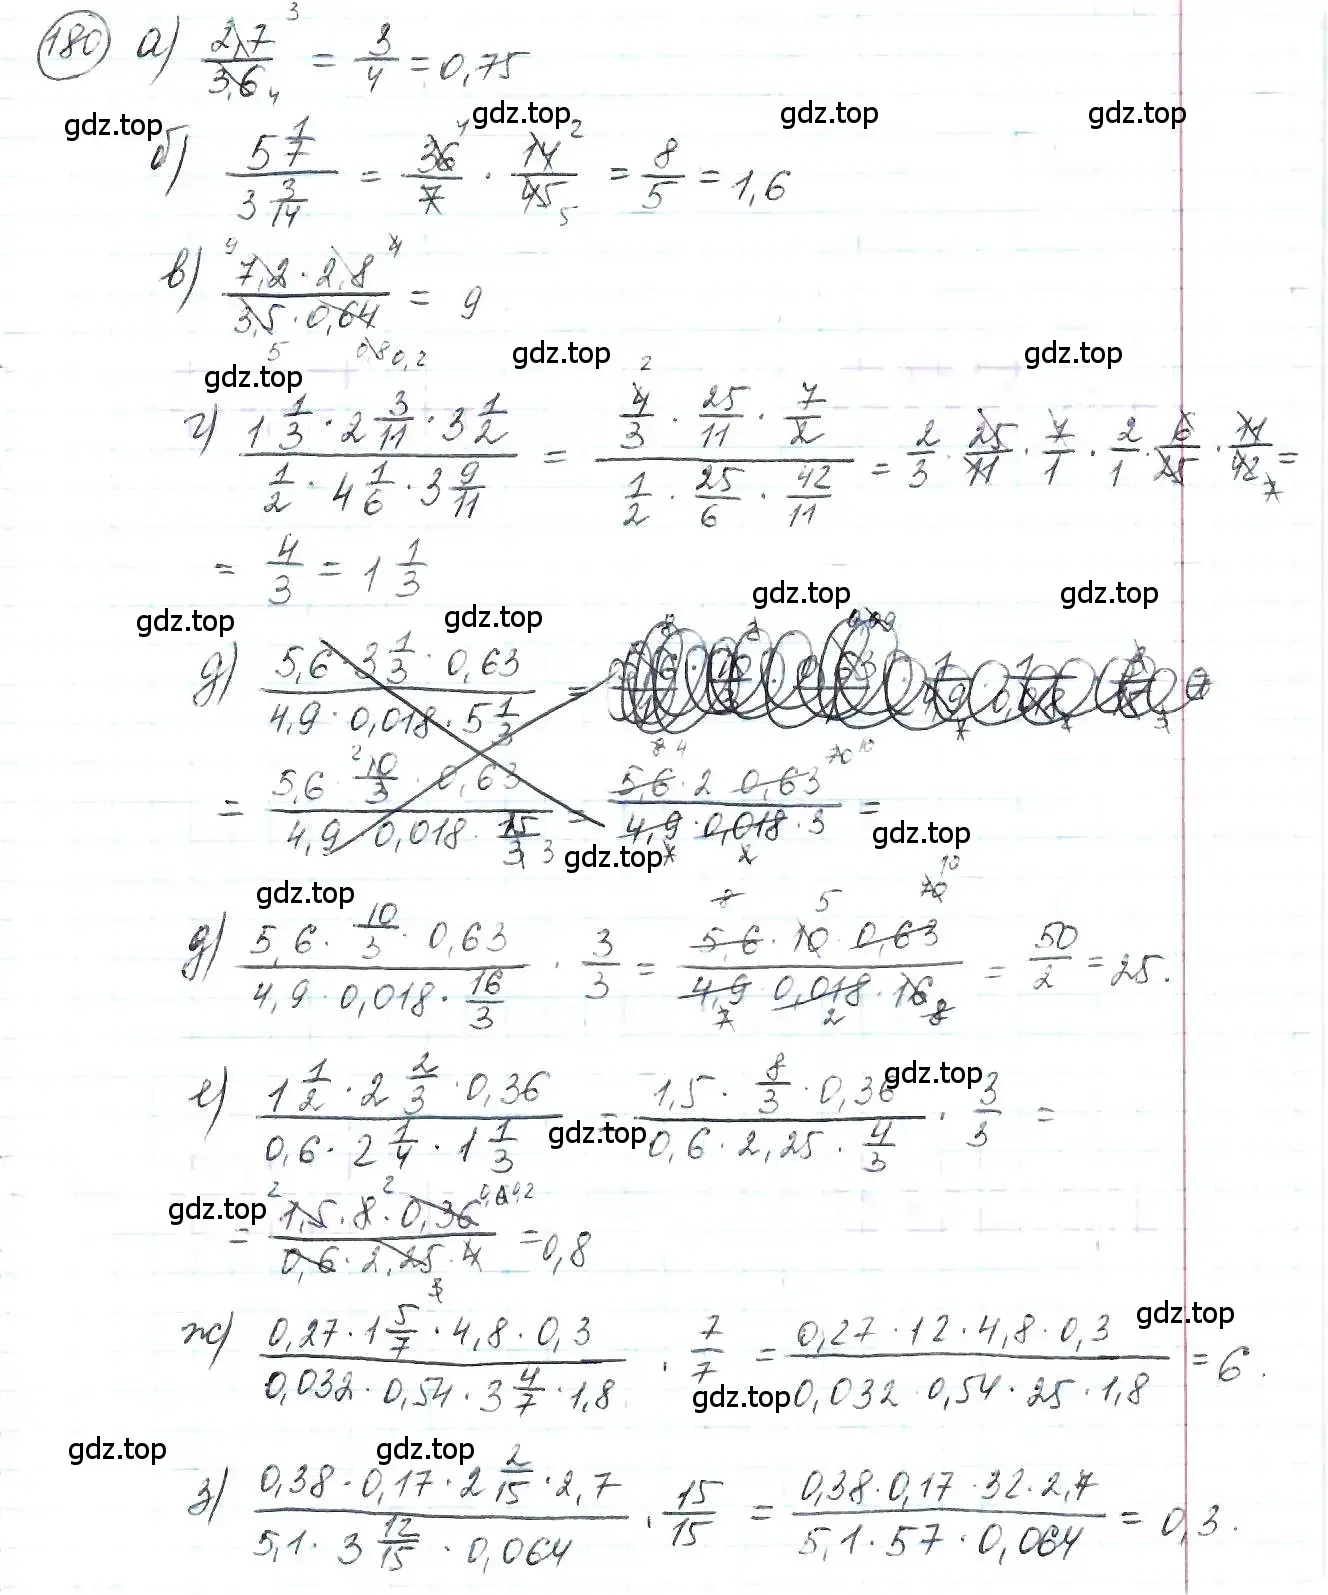 180 а) 2,7/3,6 = 3/4 = 0,75
gdz.top gdz.top gdz.top gdz.top
б) 5 1/7 / 3 3/14 = 36/7 · 14/45 = 8/5 = 1,6
в) 7,2 · 2,8 / 3,5 · 0,64 = 9
gdz.top gdz.top gdz.top
г) 1 1/3 · 2 3/11 · 3 1/2 / 1/2 · 4 1/6 · 3 9/11 = 4/3 · 25/11 · 7/2 / 1/2 · 25/6 · 42/11 = 2/3 · 25/11 · 7/1 · 2/1 · 6/25 · 11/42 =
= 4/3 = 1 1/3
gdz.top gdz.top gdz.top gdz.top
д) 5,6 · 3 1/3 · 0,63 / 4,9 · 0,018 · 5 1/3 =
= 5,6 · 10/3 · 0,63 / 4,9 · 0,018 · 15/3 = 5,6 · 2 · 0,63 / 4,9 · 0,018 · 3 =
gdz.top gdz.top gdz.top
д) 5,6 · 10/3 · 0,63 / 4,9 · 0,018 · 16/3 · 3/3 = 5,6 · 10 · 0,63 / 4,9 · 0,018 · 16 = 50/2 = 25.
е) 1 1/2 · 2 2/3 · 0,36 / 0,6 · 2 1/4 · 1 1/3 = 1,5 · 8/3 · 0,36 / 0,6 · 2,25 · 4/3 · 3/3 =
gdz.top gdz.top gdz.top
= 1,5 · 8 · 0,36 / 0,6 · 2,25 · 4 = 0,8
ж) 0,27 · 1 5/7 · 4,8 · 0,3 / 0,032 · 0,54 · 3 4/7 · 1,8 · 7/7 = 0,27 · 12 · 4,8 · 0,3 / 0,032 · 0,54 · 25 · 1,8 = 6.
gdz.top gdz.top gdz.top gdz.top
з) 0,38 · 0,17 · 2 2/15 · 2,7 / 5,1 · 3 12/15 · 0,064 · 15/15 = 0,38 · 0,17 · 32 · 2,7 / 5,1 · 57 · 0,064 = 0,3.